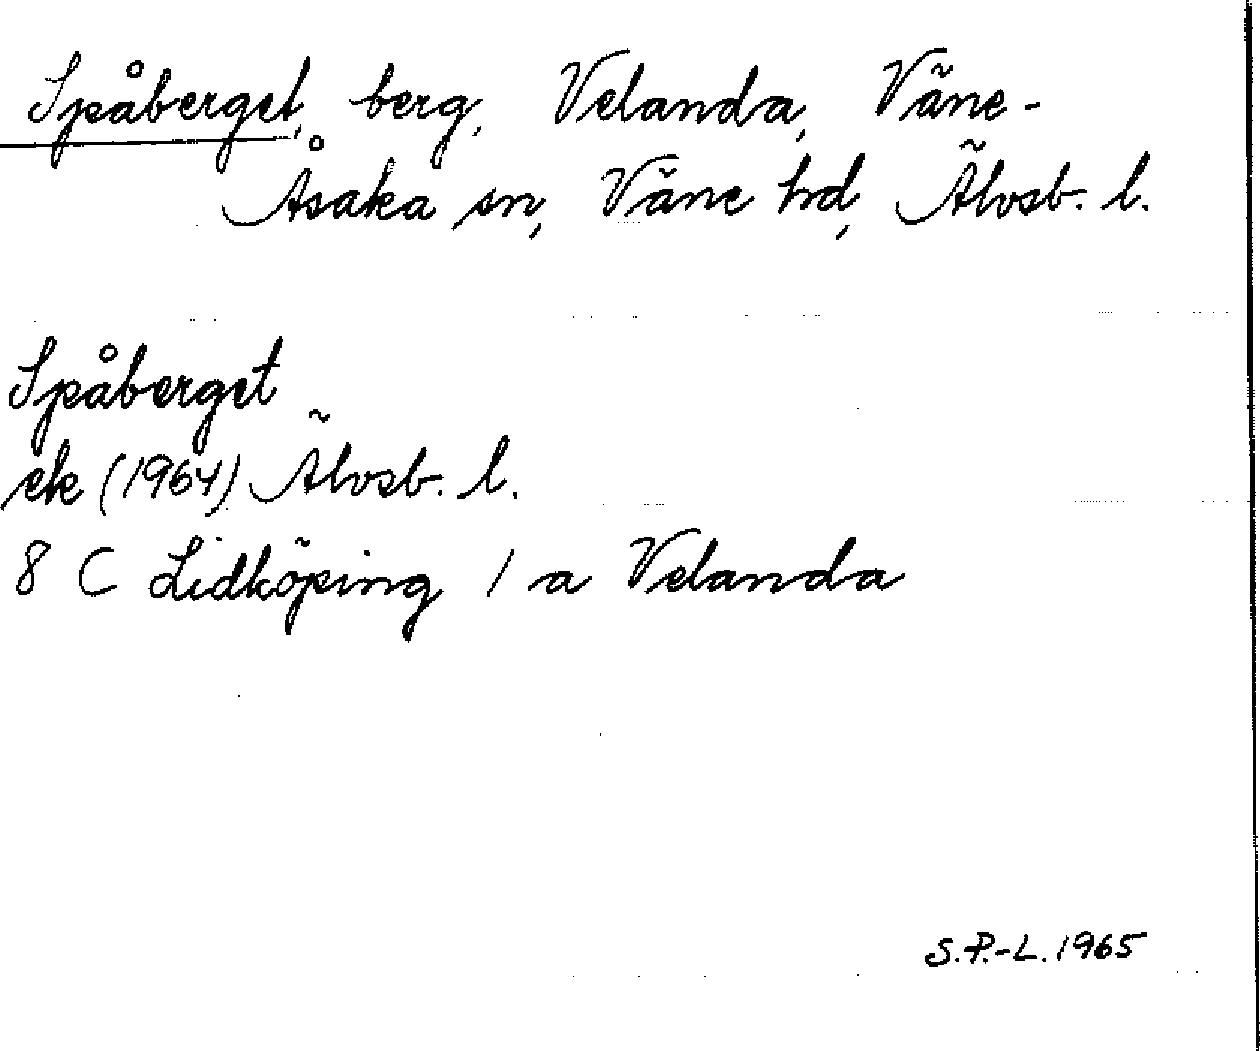 Spåberget, berg, Velanda, Väne-
Åsaka sn, Väne hd, Älvsb. l.
Spåberget
ek (1964) Älvsb. l.
8 C Lidköping 1 a Velanda
S.P.-L. 1965